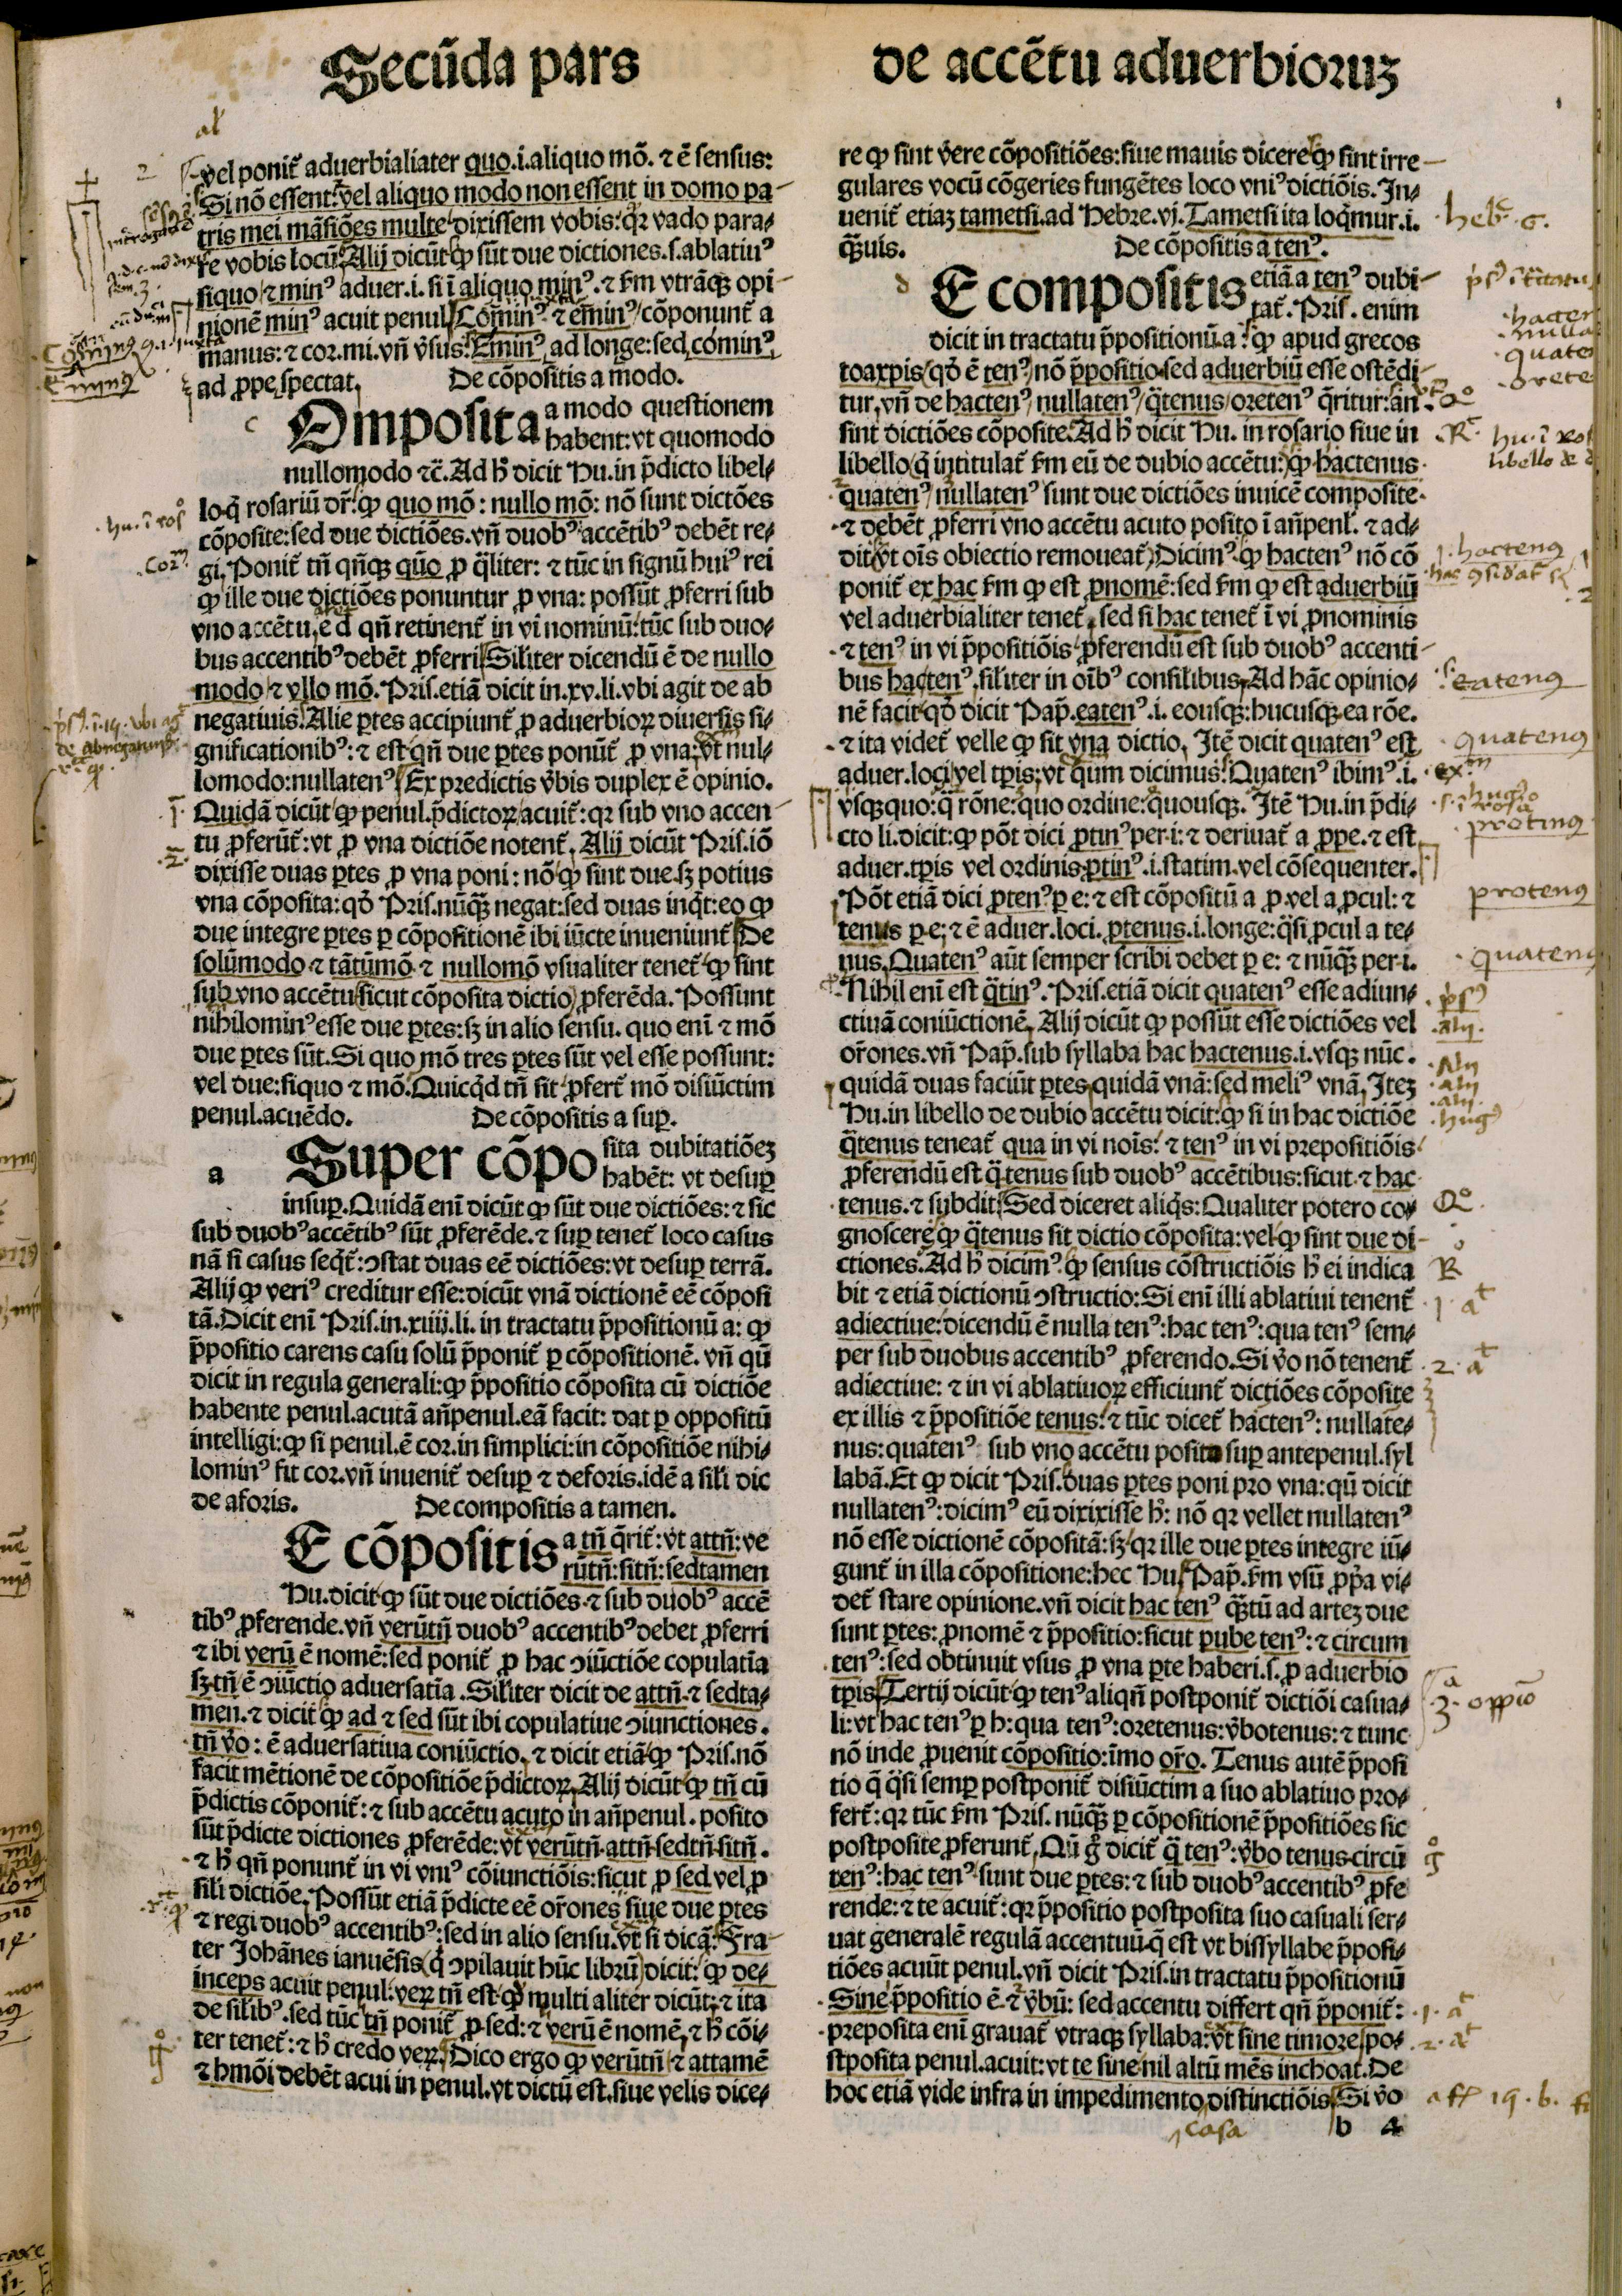 Secūda pars
de accētu aduerbioruꝫ
vel ponit̃ aduerbialiater quo.i.aliquo mō. ⁊ ē sensus:
Si nō essent: vel aliquo modo non essent in domo pa-
tris mei māsiões multe dixissem vobis: qꝛ vado para-
re vobis locū. Alij dicūt ꝙ sūt due dictiones.s.ablatiuꝰ
siquo ⁊ minꝰ aduer.i. si ī aliquo minꝰ. ⁊ ẜm vtrāqꝫ opi-
nionē minꝰ acuit penul. Cōminꝰ ⁊ eminꝰ cōponunt̃ a
manus: ⁊ cor.mi.vñ v̉sus. Eminꝰ ad longe: sed cominꝰ
ad ꝓpe spectat.
De cōpositis a modo.
Omposita a modo questionem
habent: vt quomodo
nullomodo ⁊c̃. Ad h̉ dicit Hu.in p̄dicto libel-
lo.q̇ rosariū dr̃. ꝙ quo mō: nullo mō: nō sunt dictões
cōposite: sed due dictiões.vñ duobꝰ accētibꝰ debēt re-
gi. Ponit̃ tñ qñqꝫ quo ꝓ q̄liter: ⁊ tūc in signū huiꝰ rei
ꝙ ille due dictiões ponuntur ꝓ vna: possūt ꝓferri sub
vno accētu.
qñ retinent̃ in vi nominū: tūc sub duo-
bus accentibꝰ debēt ꝓferri. Siliter dicendū ē de nullo
modo ⁊ vllo mō. Pris.etiā dicit in.xv.li.vbi agit de ab
negatiuis. Alie ꝑtes accipiunt̃ ꝓ aduerbioꝝ diuersis si-
gnificationibꝰ: ⁊ est qñ due ꝑtes ponūt̃ ꝓ vna: vt nul-
lomodo: nullatenꝰ. Ex predictis v̉bis duplex ē opinio.
Quidā dicūt ꝙ penul.p̄dictoꝝ acuit̃: qꝛ sub vno accen-
tu ꝓferūt̃: vt ꝓ vna dictiōe notent̃. Alij dicūt Pris.iō
dixisse duas ꝑtes ꝓ vna poni: nō ꝙ sint due.sꝫ potius
vna cōposita: qd̉ Pris.nūqꝫ negat: sed duas inq̇t: eo ꝙ
due integre ꝑtes ꝑ cōpositionē ibi iūcte inueniunt̃. De
solūmodo ⁊ tātūmō ⁊ nullomō vsualiter tenet̃ ꝙ sint
sub vno accētu sicut cōposita dictio ꝓferēda. Possunt
nihilominꝰ esse due ꝑtes: sꝫ in alio sensu. quo enī ⁊ mō
due ꝑtes sūt. Si quo mō tres ꝑtes sūt vel esse possunt:
vel due: siquo ⁊ mō. Quicq̇d tñ sit ꝓfert̃ mō disiūctim
penul.acuēdo.
De cōpositis a suꝑ.
a
Super cōpo sita dubitatiōeꝫ
habēt: vt desuꝑ
insuꝑ. Quidā enī dicūt ꝙ sūt due dictiões: ⁊ sic
sub duobꝰ accētibꝰ sūt ꝓferēde. ⁊ suꝑ tenet̃ loco casus
nā si casus seqt̃: ꝯstat duas eē dictiões: vt desuꝑ terrā.
Alij ꝙ veriꝰ creditur esse: dicūt vnā dictionē eē cōposi
tā. Dicit enī Pris.in.xiiij.li. in tractatu p̄positionū a: ꝙ
p̄positio carens casu solū p̄ponit̃ ꝑ cōpositionē. vñ qū
dicit in regula generali: ꝙ p̄positio cōposita cū dictiōe
habente penul.acutā añpenul.eā facit: dat ꝑ oppositū
intelligi: ꝙ si penul.ē cor.in simplici: in cōpositiōe nihi-
lominꝰ fit cor.vñ inuenit̃ desuꝑ ⁊ deforis.idē a sili dic
de aforis.
De compositis a tamen.
E cōpositis a tñ q̄rit̃: vt attñ: ve
rūtñ: sitñ: sedtamen
Hu.dicit ꝙ sūt due dictiões ⁊ sub duobꝰ accē
tibꝰ ꝓferende.vñ verūtñ duobꝰ accentibꝰ debet ꝓferri
⁊ ibi verū ē nomē: sed ponit̃ ꝓ hac ꝯiūctiōe copulatīa
sꝫ tñ ē ꝯiūctio aduersatīa. Siliter dicit de attñ ⁊ sedta-
men. ⁊ dicit ꝙ ad ⁊ sed sūt ibi copulatiue ꝯiunctiones.
tñ v̉o: ē aduersatiua coniūctio. ⁊ dicit etiā ꝙ Pris.nō
facit mētionē de cōpositiōe p̄dictoꝝ. Alij dicūt ꝙ tñ cū
p̄dictis cōponit̃: ⁊ sub accētu acuto in añpenul. posito
sūt p̄dicte dictiones ꝓferēde: vt verūtñ.attñ.sedtñ.sitñ.
⁊ h̉ qñ ponunt̃ in vi vniꝰ cōiunctiōis: sicut ꝓ sed vel ꝓ
sili dictiōe. Possūt etiā p̄dicte eē or̃ones siue due ꝑtes
⁊ regi duobꝰ accentibꝰ: sed in alio sensu. vt si dicā. Fra-
ter Johānes ianuēsis (q̇ ꝯpilauit hūc librū) dicit: ꝙ de-
inceps acuit penul: veꝝ tñ est ꝙ multi aliter dicūt: ⁊ ita
de silibꝰ. sed tūc tñ ponit̃ ꝓ sed: ⁊ verū ē nomē, ⁊ h̉ cōi-
ter tenet̃: ⁊ h̉ credo veꝝ. Dico ergo ꝙ verūtñ ⁊ attamē
⁊ hmōi debēt acui in penul.vt dictū est.siue velis dice-
re ꝙ sint v̉ere cōpositiões: siue mauis dicere ꝙ sint irre-
gulares vocū cōgeries fungētes loco vniꝰ dictiōis. In-
uenit̃ etiaꝫ tametsi.ad Hebre.vj. Tametsi ita loq̇mur.i.
qꝫuis.
De cōpositis a tenꝰ.
E compositis etiā a tenꝰ dubi-
tat̃. Pris. enim
dicit in tractatu p̄positionū.a: ꝙ apud grecos
toaxpis (qd̉ ē tenꝰ) nō p̄positio sed aduerbiū esse ostēdi
tur, vñ de hactenꝰ nullatenꝰ q̄tenus oretenꝰ q̄ritur: an
sint dictiões cōposite. Ad h̉ dicit Hu. in rosario siue in
libello (q̇ intitulat̃ ẜm eū de dubio accētu:) ꝙ hactenus
quatenꝰ nullatenꝰ sunt due dictiões inuicē composite
⁊ debēt ꝓferri vno accētu acuto posito ī añpenl. ⁊ ad-
dit vt oīs obiectio remoueat̃. Dicimꝰ ꝙ hactenꝰ nō cō
ponit̃ ex hac ẜm ꝙ est ꝓnomē: sed ẜm ꝙ est aduerbiū
vel aduerbialiter tenet̃, sed si hac tenet̃ ī vi ꝓnominis
⁊ tenꝰ in vi p̄positiōis ꝓferendū est sub duobꝰ accenti-
bus hac tenꝰ.siliter in oībꝰ consilibus. Ad hāc opinio-
nē facit qd̉ dicit Pap̄.eatenꝰ.i. eousqꝫ: hucusqꝫ.ea rōe.
⁊ ita videt̃ velle ꝙ sit vna dictio. Itē dicit quatenꝰ est
aduer.loci vel tꝑis: vt qūm dicimus. Quatenꝰ ibimꝰ.i.
v̉sqꝫquo: q̄ rōne: quo ordine: quousqꝫ. Itē Hu.in p̄di-
cto li.dicit: ꝙ pōt dici ꝓtinꝰ per.i: ⁊ deriuat̃ a ꝓpe. ⁊ est
aduer.tꝑis vel ordinis. ꝓtinꝰ.i.statim.vel cōsequenter.
Pōt etiā dici ꝓtenꝰ ꝑ e: ⁊ est cōpositū a ꝓ.vel a ꝓcul: ⁊
tenus ꝑ e: ⁊ ē aduer.loci. ꝓtenus.i.longe: q̄si ꝓcul a te-
nus. Quatenꝰ aūt semper scribi debet ꝑ e: ⁊ nūqꝫ per.i.
Nihil enī est q̄tinꝰ. Pris.etiā dicit quatenꝰ esse adiun-
ctiuā coniūctionē. Alij dicūt ꝙ possūt esse dictiões vel
or̃ones.vñ Pap̄.sub syllaba hac hactenus.i.vsqꝫ nūc.
quidā duas faciūt ꝑtes quidā vnā: sed meliꝰ vnā. Iteꝫ
Hu.in libello de dubio accētu dicit: ꝙ si in hac dictiōe
q̄tenus teneat̃ qua in vi noīs: ⁊ tenꝰ in vi prepositiōis
ꝓferendū est q̄ tenus sub duobꝰ accētibus: sicut ⁊ hac
tenus. ⁊ subdit. Sed diceret aliq̇s: Qualiter potero co-
gnoscere ꝙ q̄tenus sit dictio cōposita: vel ꝙ sint due di-
ctiones. Ad h̉ dicimꝰ ꝙ sensus cōstructiōis h̉ ei indica
bit ⁊ etiā dictionū ꝯstructio: Si enī illi ablatiui tenent̃
adiectiue: dicendū ē nulla tenꝰ: hac tenꝰ: qua tenꝰ sem-
per sub duobus accentibꝰ ꝓferendo. Si v̉o nō tenent̃
adiectiue: ⁊ in vi ablatiuoꝝ efficiunt̃ dictiões cōposite
ex illis ⁊ p̄positiōe tenus: ⁊ tūc dicet̃ hactenꝰ: nullate-
nus: quatenꝰ sub vno accētu posito suꝑ antepenul.syl
labā. Et ꝙ dicit Pris.duas ꝑtes poni pro vna: qū dicit
nullatenꝰ: dicimꝰ eū dixixisse h̉: nō qꝛ vellet nullatenꝰ
nō esse dictionē cōpositā: sꝫ qꝛ ille due ꝑtes integre iū-
gunt̃ in illa cōpositione: hec Hu. Pap̄.ẜm vsū ꝓp̄a vi-
det̃ stare opinione.vñ dicit hac tenꝰ qꝫtū ad arteꝫ due
sunt ꝑtes: ꝓnomē ⁊ p̄positio: sicut pube tenꝰ: ⁊ circum
tenꝰ: sed obtinuit vsus ꝓ vna ꝑte haberi.s.ꝓ aduerbio
tꝑis. Tertij dicūt ꝙ tenꝰ aliqñ postponit̃ dictiōi casua-
li: vt hac tenꝰ ꝑ h: qua tenꝰ: oretenus: v̉botenus: ⁊ tunc
nō inde ꝓuenit cōpositio: īmo or̃o. Tenus autē p̄posi
tio q̄ q̄si semꝑ postponit̃ disiūctim a suo ablatiuo pro-
fert̃: qꝛ tūc ẜm Pris. nūqꝫ ꝑ cōpositionē p̄positiões sic
postposite ꝓferunt̃. Qū g̉ dicit̃ q̄ tenꝰ: v̉bo tenus.circū
tenꝰ: hac tenꝰ sunt due ꝑtes: ⁊ sub duobꝰ accentibꝰ ꝓfe
rende: ⁊ te acuit̃: qꝛ p̄positio postposita suo casuali ser-
uat generalē regulā accentuū.q̄ est vt bissyllabe p̄posi-
tiões acuūt penul.vñ dicit Pris.in tractatu p̄positionū
Sine p̄positio ē. ⁊ v̉bū: sed accentu differt qñ p̄ponit̃:
preposita enī grauat̃ vtraqꝫ syllaba: vt sine timore, po-
stposita penul.acuit: vt te sine nil altū mēs inchoat. De
hoc etiā vide infra in impedimento distinctiōis Si v̉o
casa
b 4